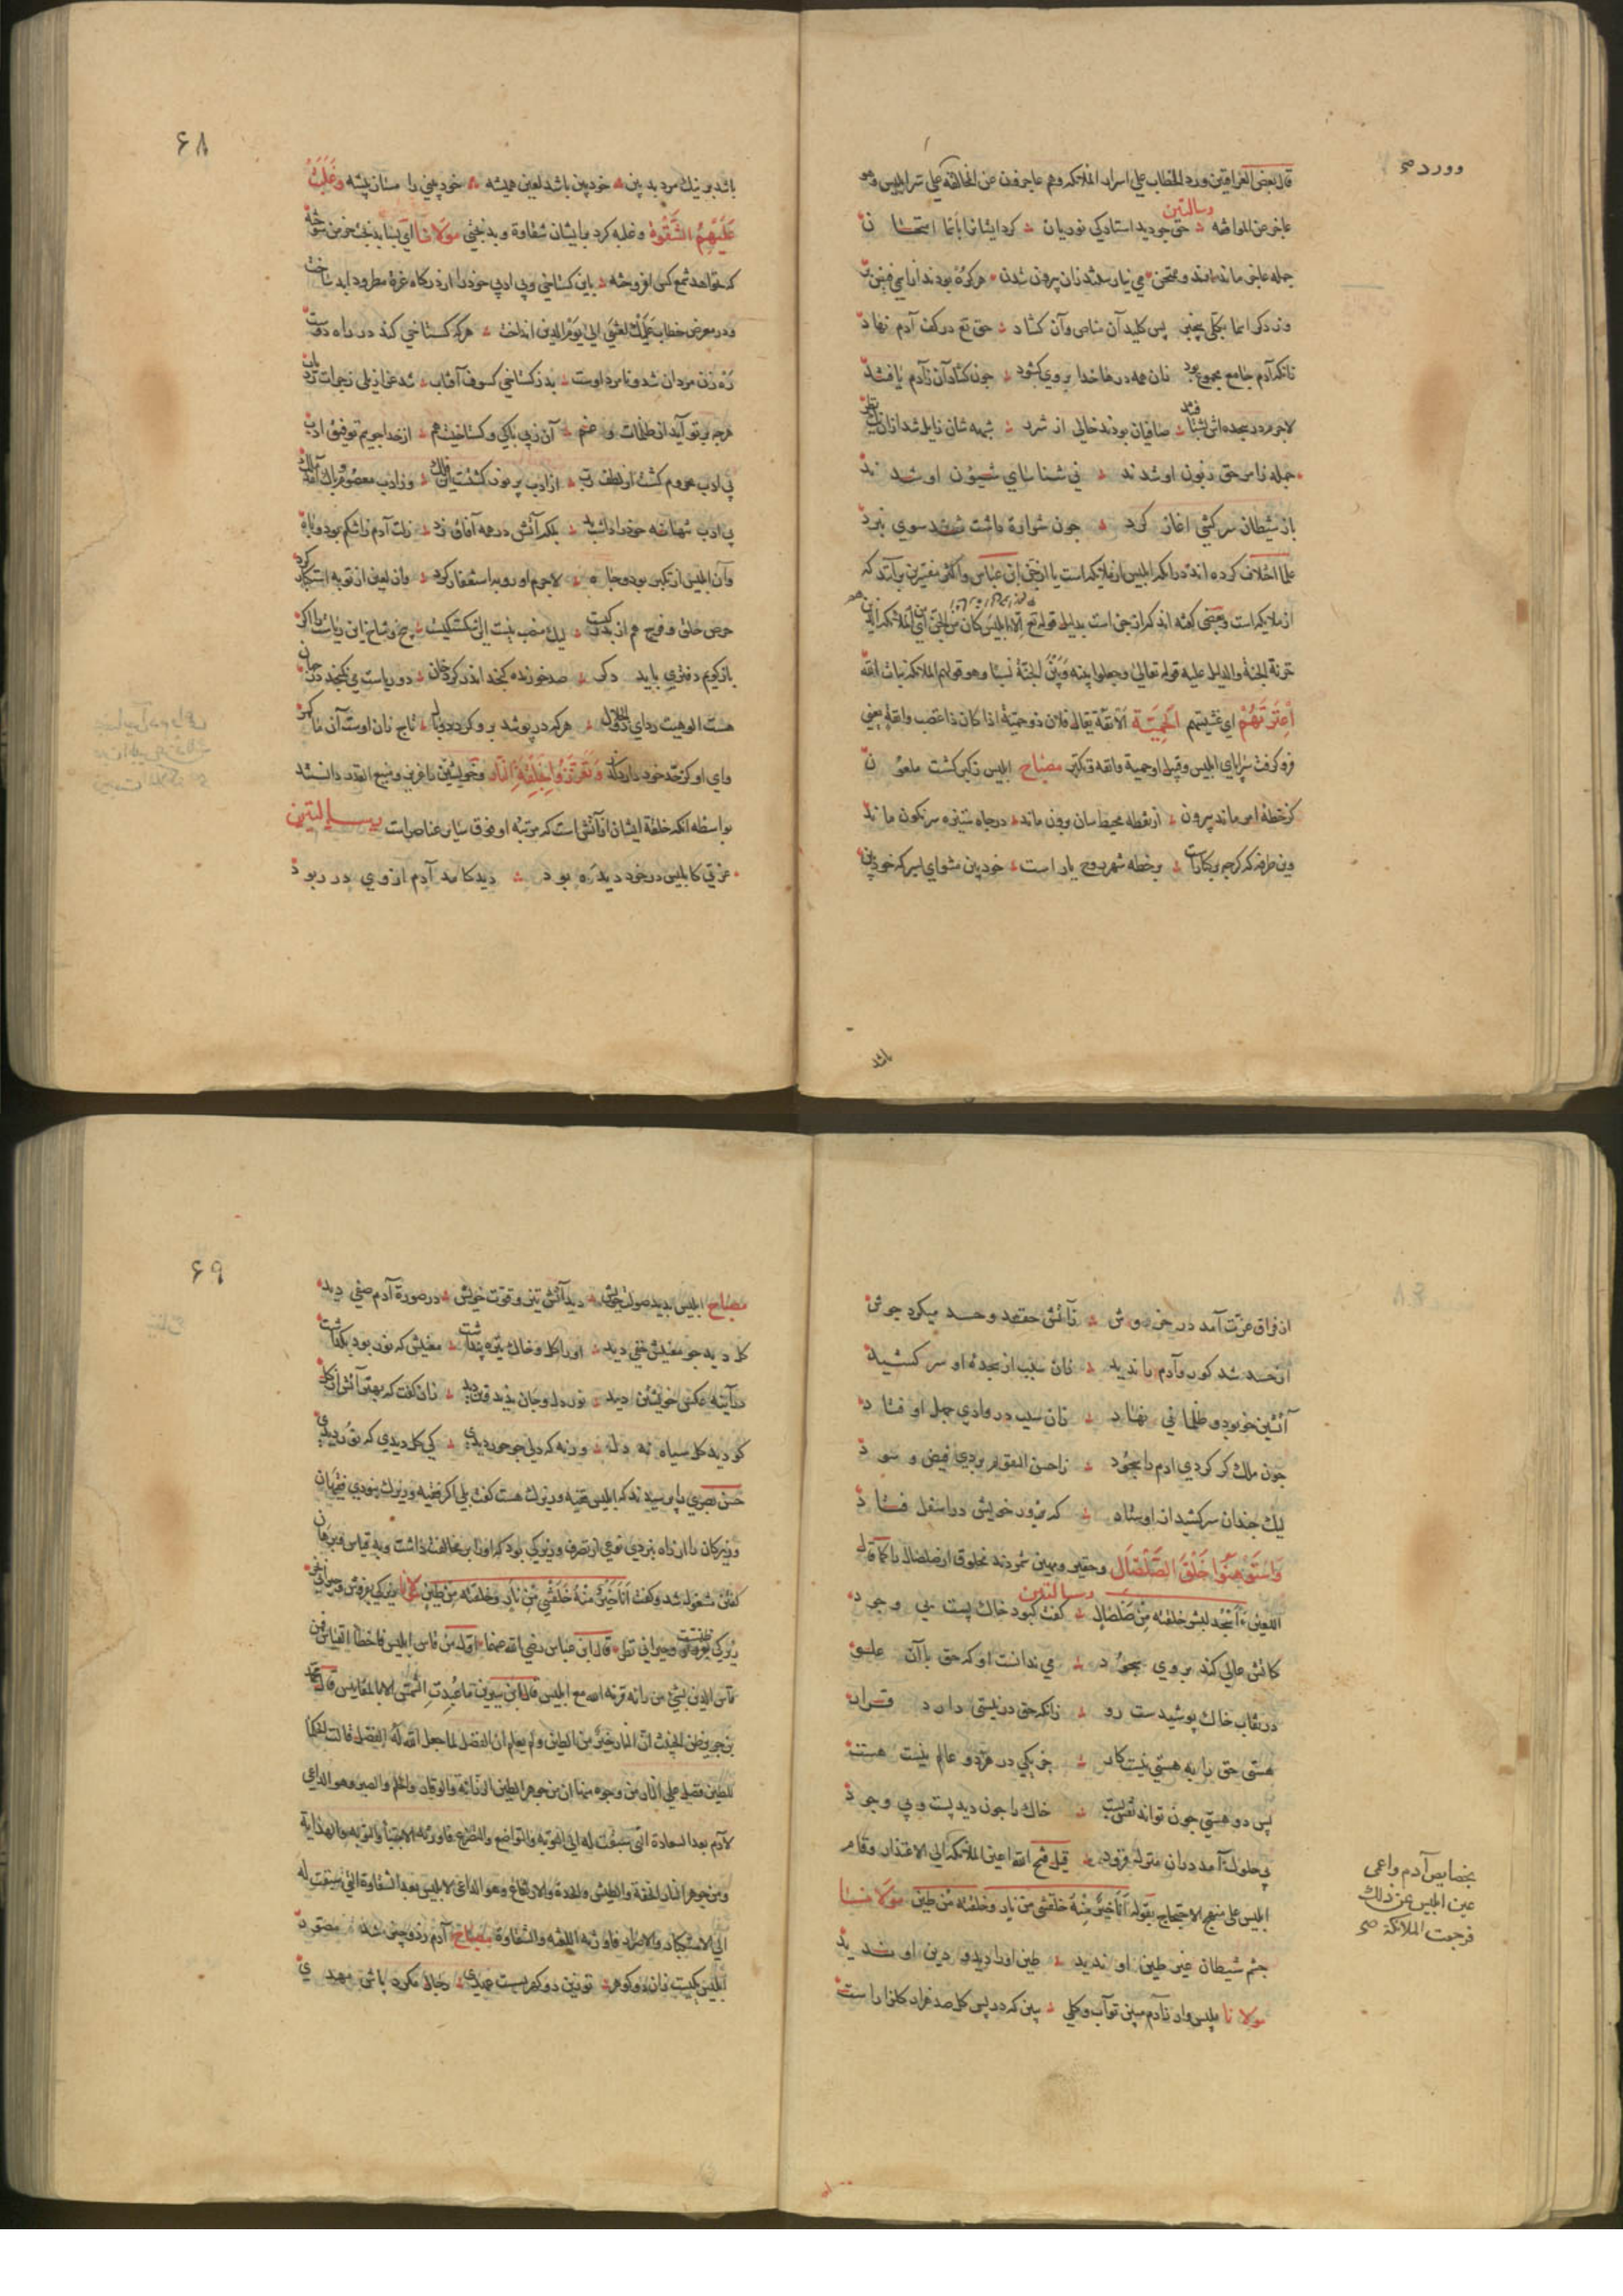 وورد صح
قال بعض العراقین ورد الخطاب علی اسرار الملائکه وهم عاجزون عن المخالفة علی سر ابلیس وهو
رسالتین
عاجز عن الموافقه حق چو دید استادکی نوریان کرد ایشانرا بانما امتحان
جمله عاجز ماندند و ممتحن می نیارستند زان بیرون شدن
پس کلید آن مناص وآن کشاد حق تع در کف آدم نهاد
زانکه آدم جامع مجموع بود زان همه درها خدا بروی کشود چون کشاد آن زآدم یافتند
لاجرم در سجده اش بشتافتند صافیان بودند خالی از شرب شبهه شان زایل شد ازان
جمله زامر حق زبون او شدند فی شناسای شیؤن او شدند
باز شیطان سرکشی اغاز کرد چون شراره داشت شد سوی نبرد
علما اختلاف کرده اند درانکه ابلیس از ملایکه است یا از جن ابن عباس واکثر مفسرین برآنند که
از ملایکه است و بعضی کفته اند که از جن است بدلیل قوله تع الا ابلیس کان من الجن ای من الملائکه الذین هم
خزنة الجنة والدلیل علیه قوله تعالی وجعلوا بینه وبین الجنة نسبا وهو قولهم الملائکه بنات الله
اعترتهم ای غشیتهم الحمیة الانفة یقال فلان ذو حمیة اذا کان ذا غضب وانفة یعنی
فرو کرفت سراپای ابلیس وقبیل او حمیة وانفه و تکبر مصباح ابلیس زکبر کشت ملعون
کز خطه امر ماند بیرون از نقطه محیط سان برون ماند در چاه ستیزه سرنکون ماند
وین طرفه که کرچه برکنارست بر خطه شهر روح یار است خود بین مشو ای پسر که خودبین
باشد
۶۸
باشد بر نیک مرد بد بین خود بین باشد لعین همیشه خود بینی را مساز پیشه وغلبت
علیهم الشقوة وغلبه کرد بایشان شقاوة و بدبختی مولانا
که خواهد شمع کس افروخته باین کستاخی وبی ادبی خود را از درکاه عزة مطرود ابد ساخت
ودر معرض خطاب علیک لعنتی الی یوم الدین انداخت هر که کستاخی کند در راه دوست
ره زن مردان شد و نامرد اوست بد زکستاخی کسوف آفتاب شد عزازیلی زجرات رد باب
هرچه بر تو آید از ظلمات و غم آن زبی باکی و کستاخیست هم از خدا جوییم توفیق ادب
بی ادب محروم کشت از لطف رب از ادب پر نور کشتست این فلک وز ادب معصوم و پاک آمد ملک
بی ادب تنها نه خود را داشت بد بلکه آتش در همه آفاق زد زلت آدم زاشکم بود و باه
وآن ابلیس از تکبر بود و جاه لاجرم او زود استغفار کرد وان لعین از توبه استکبار کرد
حرص خلق و فرج هم از بدرکیست لیک منصب نیست آن اشکستکیست بیخ و شاخ این ریاست را اکر
باز کویم دفتری باید دکر صد خورنده کنجد اندر کرد خوان دو ریاست می نکنجد در جهان
هست الوهیت ردای ذو الجلال هر که در پوشد برو کردد وبال تاج زان اوست آن ما کمر
وای او کز حد خود دارد کذر وتعززوا بخلقة النار وخویشتن را عزیز و منیع القدر دانستند
بواسطه انکه خلقة ایشان از آتش است که مرتبه او فوق سایر عناصرات رسالتین
عزتی کابلیس در خود دیده بود دید کامد آدم از وی در ربود
از فراق عزت آمد در خروش زآتش حقد و حسد میکرد جوش
از حسد شد کور وآدم را ندید زان سبب از سجده او سر کشید
آتشین خو بود و ظلمانی نهاد زان سبب در وادی جهل او فتاد
چون ملک کر کردی آدم را سجود زاحسن التقویم بردی فیض و سود
لیک چندان سر کشید از اوستاد که بزور خویش در اسفل فتاد
واستوهنوا خلق الصلصال وحقیر و مهین شمردند مخلوق از صلصال را کما قال
رسالتین
اللعین ءاسجد لبشر خلقته من صلصال کفت کبود خاک پست بی وجود
کاتش عالی کند بروی سجود می ندانست او که حق با آن علو
در نقاب خاک پوشیدست رو زانکه حق در نیستی دارد قرار
هستی حق را به هستی نیست کار جز یکی در هردو عالم نیست هست
پس دو هستی چون تواند نقش بست خاک را چون دید پست و بی وجود
بی حلولی آمد دران منزل فرود قیل فتح الله اعین الملائکه الی الاعتذار وقام
بخصایص آدم واعمی
عین ابلیس عن ذلک
فرجعت الملائکة صح
ابلیس علی منهج الاحتجاج بقوله انا خیر منه خلقتنی من نار وخلقته من طین مولانا
چشم شیطان غیر طین او ندید طین او را دید و دین او ندید
مولانا بلیس وار زآدم مبین تو آب و کلی ببین که در پس کل صد هزار کلزار است
۶۹
مصباح ابلیس بدید صولت خویش دید آتش تیز و قوت خویش در صورة آدم صفی دید
کل دید چو معنیش خفی دید او را کل و خاک تیره پنداشت معنیش که نور بود بکذاشت
در آینه عکس خویشتن دید نور دل و جان ندید و تن دید زان کفت که بهتر آتش از کل
کو دید کل سیاه نه دل ورنه که دلی چو حور دیدی کی کل دیدی که نور دیدی
حسن بصری را پرسیدند که ابلیس فقیه و زیرک هست کفت بلی اکر فقیه و زیرک نبودی فقیهان
وزیرکان را از راه نبردی نوعی از تصرف و زیرکی بود که او را بر مخالفت داشت وبه قیاس و برهان
کفتن مشغول شد و کفت انا خیر منه خلقتنی من نار وخلقته من طین مولانا زیرکی بفروش و حیرانی بخر
زیرکی ظنست و حیرانی نظر قال ابن عباس رضی الله عنهما اول من قاس ابلیس فاخطأ القیاس فمن
قاس الدین بشیء من رایه قرنه الله مع ابلیس قال ابن سیرین ما عبدت الشمس الا بالمقاییس قال محمد
بن جریر ظن الخبیث ان النار خیر من الطین ولم یعلم ان الفضل لما جعل الله له الفضل قالت الحکما
للطین فضل علی النار من وجوه منها ان من جوهر الطین الرزانة والوقار والحلم والصبر وهو الداعی
لآدم بعد السعادة التی سبقت له الی التوبة والتواضع والتضرع فاورثه الاجتباء والتوبة والهدایة
ومن جوهر النار الخفة والطیش والحدة والارتفاع وهو الداعی لابلیس بعد الشقاوة التی سبقت له
الی الاستکبار والاصرار فاورثه اللعنة والشقاوة مصباح آدم زدو چیز شد مصور
ابلیس یکیست زان دو کوهر